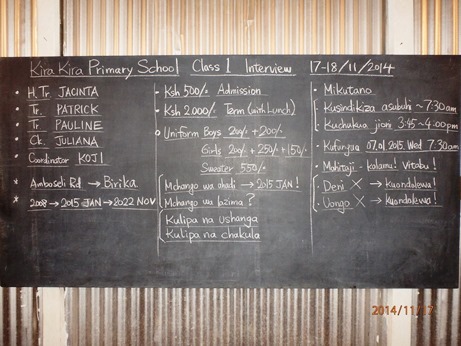 Kira Kira Primary School Class 1 Interview 17-18/11/2014
• H.Tr. JACINTA
• Tr. PATRICK
• Tr. PAULINE
• Ck. JULIANA
• Coordinator KOJI
* Amboseli Rd → Birika
* 2008 → 2015 JAN → 2022 NOV
• Ksh 500/- Admission
• Ksh 2.000/- Term (with Lunch)
Uniform Boys 200/- + 200/-
Girls 200/- + 250/- + 150/-
Sweater 550/-
Mchango wa ahadi → 2015 JAN!
Mchango wa lazima?
Kulipa na ushanga
Kulipa na chakula
• Mikutano
Kusindikiza asubuhi ~7:30am
Kuchukua jioni 3:45~4:00pm
• Kufungua 07.01.2015. Wed 7:30am
• Mahitaji - kalamu! Vitabu!
• Deni X → Kuondolewa!
• Uongo X → Kuondolewa!
2014/11/17